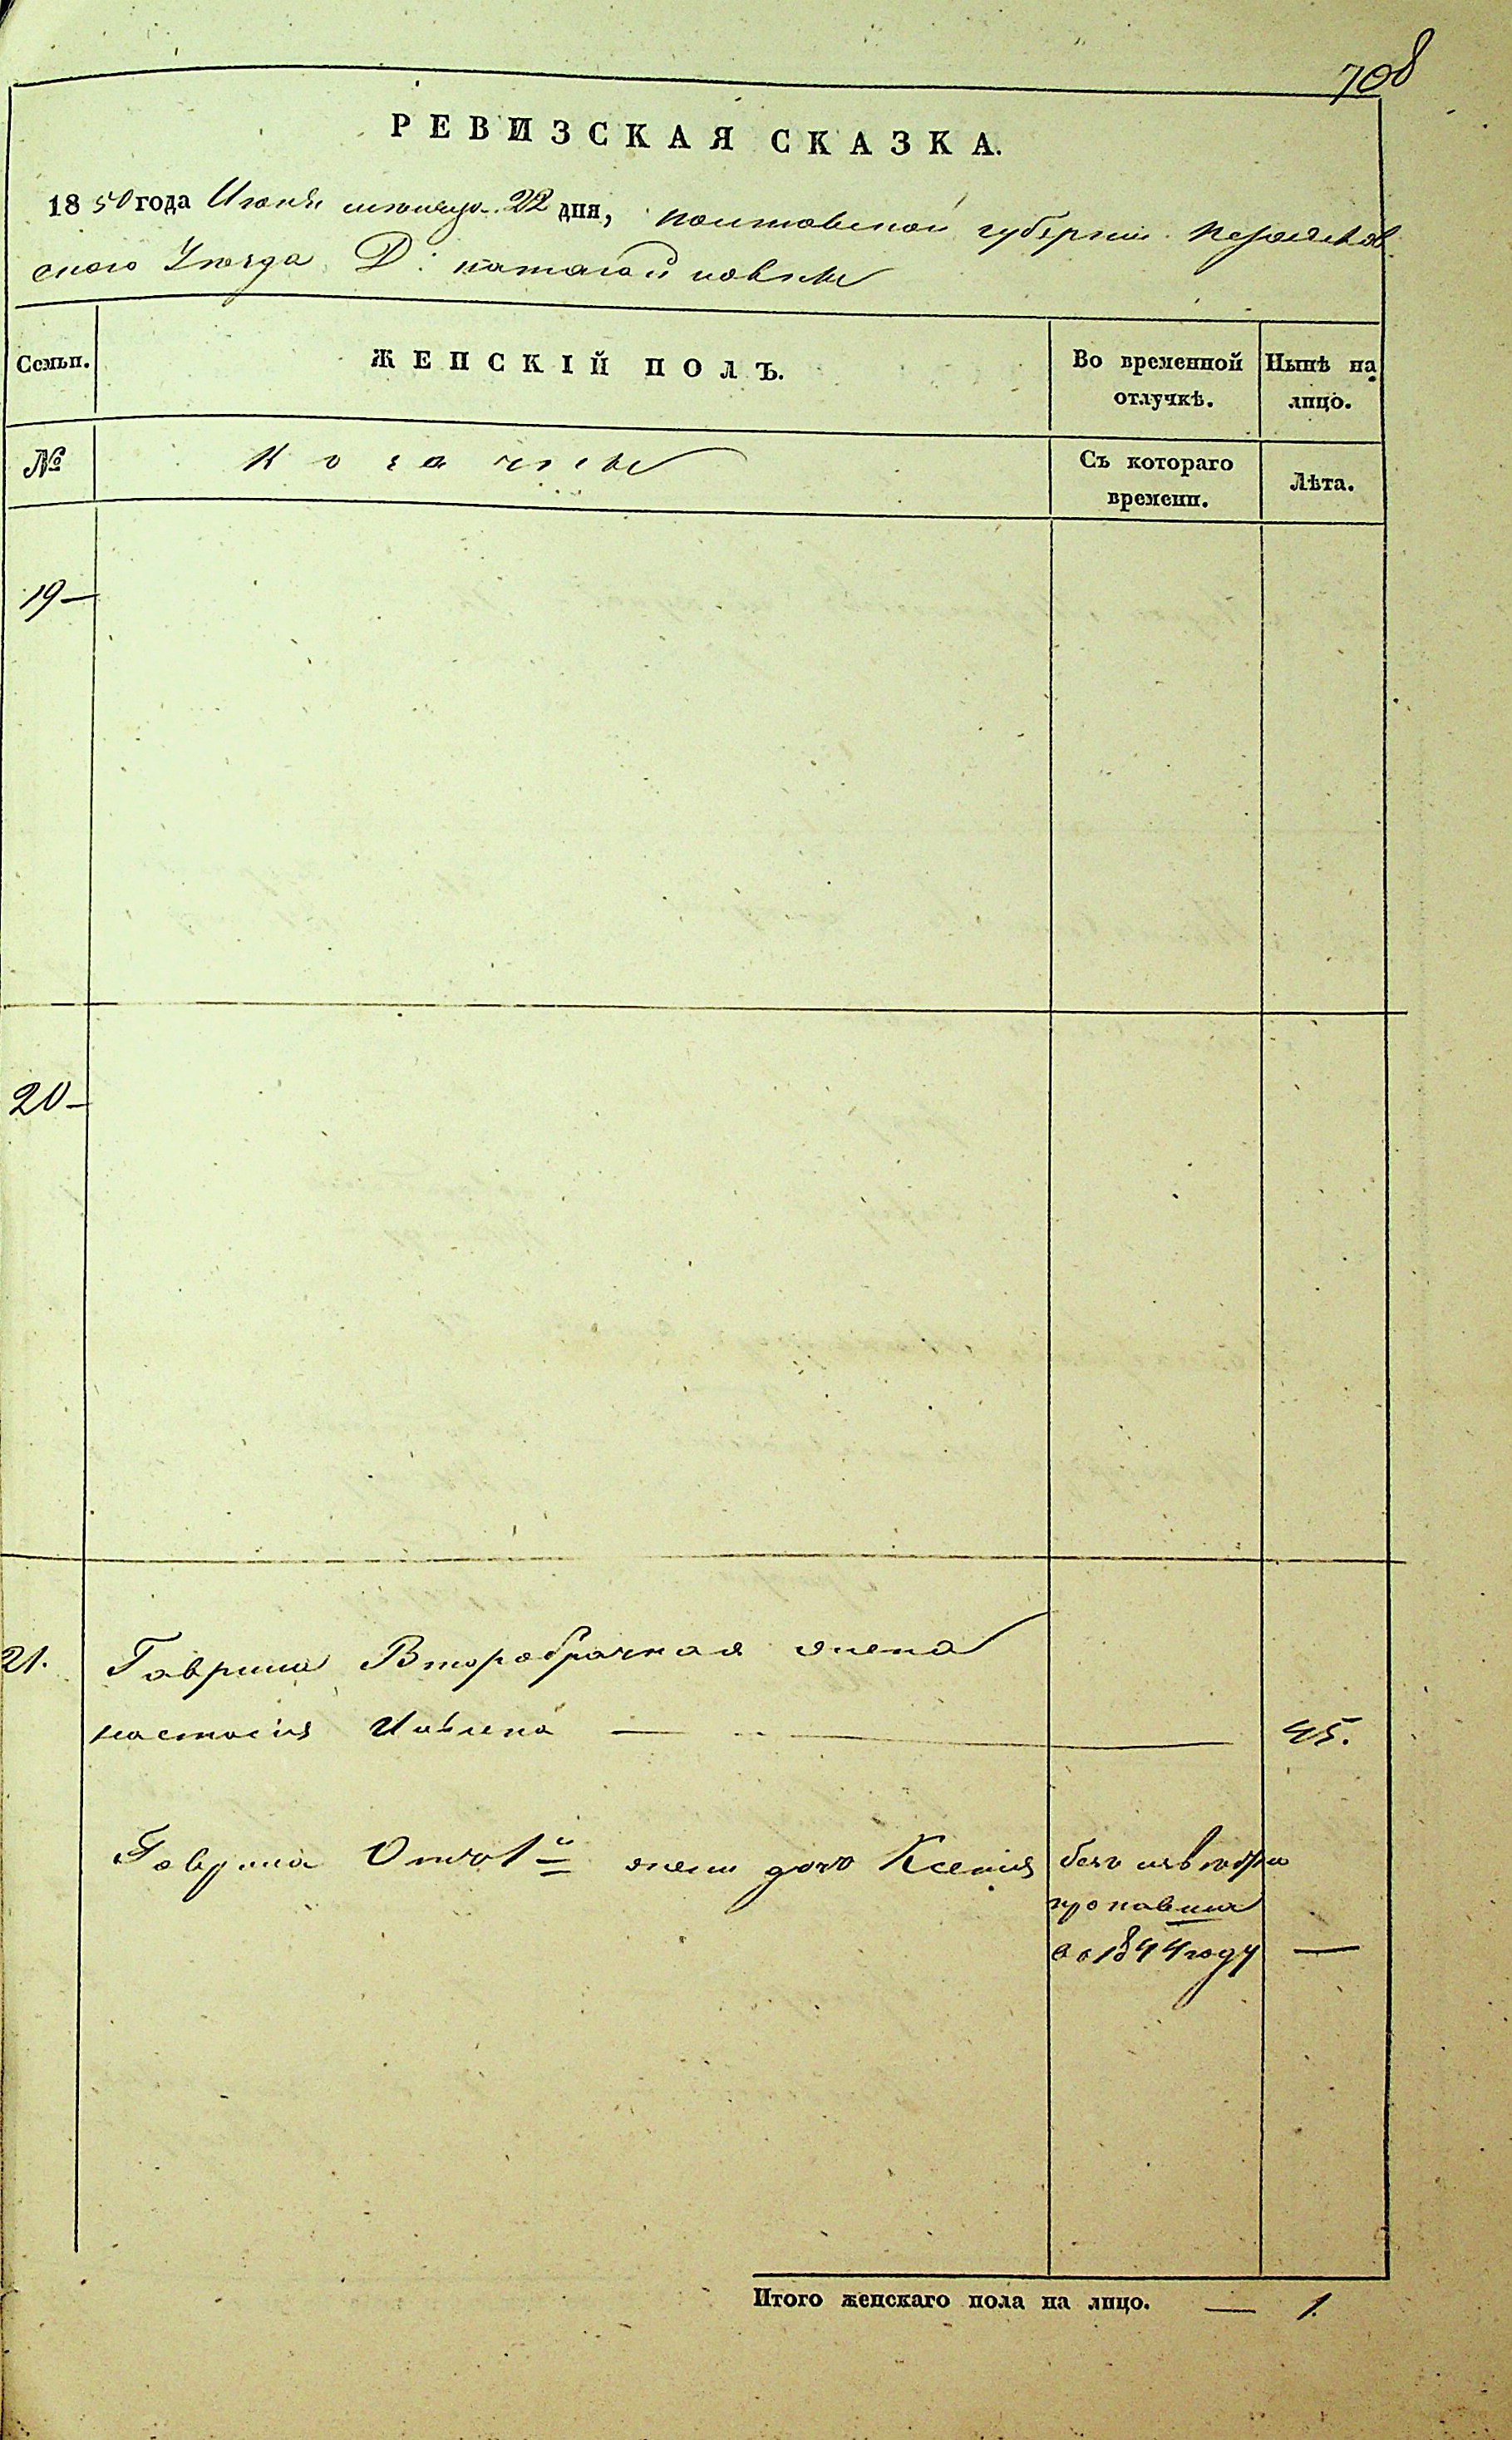 708
РЕВИЗСКАЯ СКАЗКА.
1850 года Июня месяца 22 дня, полтавской губернии переяслов
ского Уезда Д:
Семьи. ЖЕНСКІЙ ПОЛЪ. Во временной отлучкѣ. Нынѣ на лицо.
№ Козачки Съ котораго времени. Лѣта.
19 —
20 —
21. Гаврила Второбрачная жена
настасия Иовлева — 45.
Гаврила Отъ 1й жены дочь Ксения безъ известно
пропавша
въ 1844 году —
Итого женскаго пола на лицо. — 1.